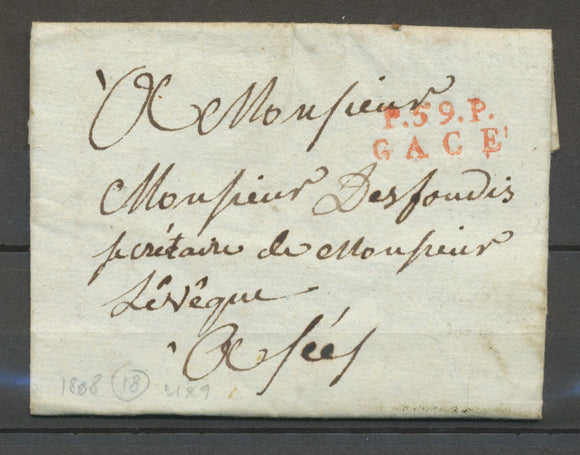 A Monsieur
P.59.P.
GACÉ
Monsieur Desfoudis
secrétaire de Monsieur
Lévêque
A Séés
1808 18 21x9